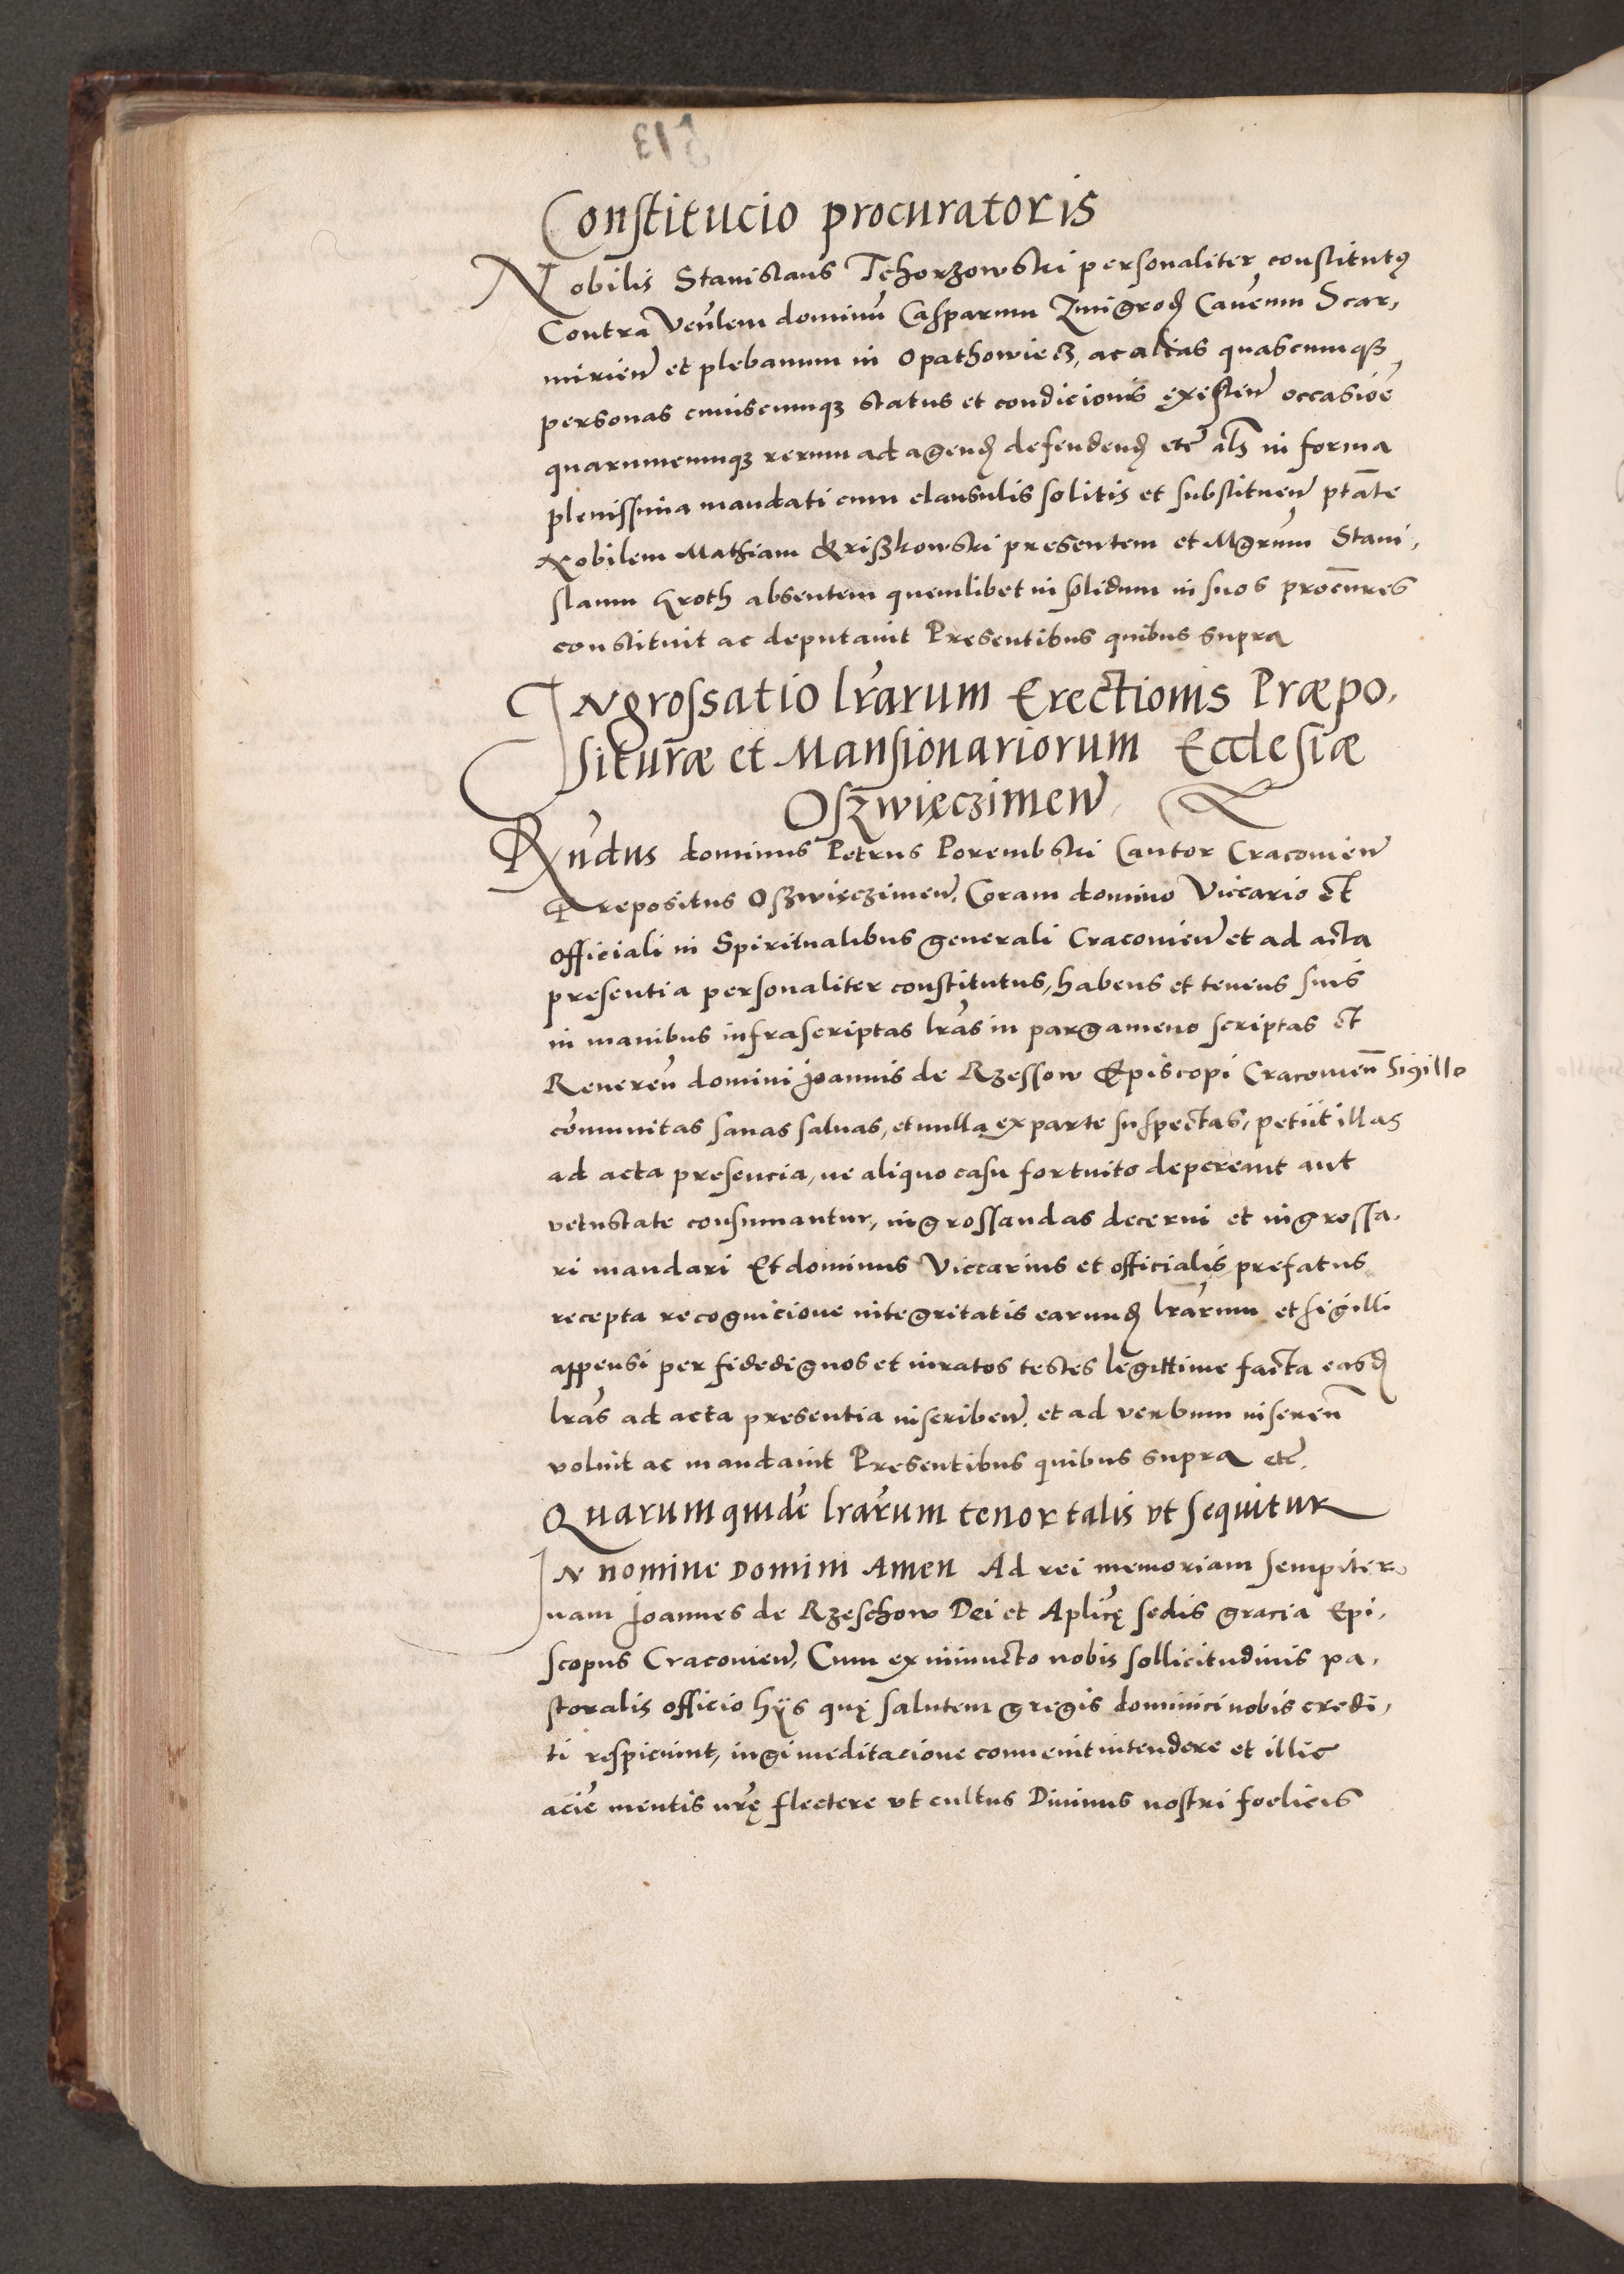 Constitucio procuratoris
Nobilis Stanislaus Tchorzowski personaliter constitutꝰ
Contra Veñlem dominū Casparum Zmigrod Cañcum Scar,
mirieñ et plebanum in Opathowiecz, ac alias quascumqꝫ
personas cuiuscumqꝫ status et condicionis existeñ occasiõe
quarumcumqꝫ rerum ad agend defendend etc̃ als in forma
plenissima mandati cum clausulis solitis et substitueñ ptãte
Nobilem Mathiam presentem et Mgrum Stani,
slaum Groth absentem quemlibet in solidum in suos procũres
constituit ac deputauit Presentibus quibus supra
Ingrossatio lr̃arum Erectionis Præpo,
situræ et Mansionariorum Ecclesiæ
Oszwięczimeñ
Rñdus dominus Petrus Porembski Cantor Cracouieñ
Prepositus Oszwięczimeñ, Coram domino Viccario et
officiali in Spiritualibus generali Cracouieñ et ad acta
presentia personaliter constitutus, habens et tenens suis
in manibus infrascriptas lr̃as in pargameno scriptas et
Reuereñ domini Joannis de Rzessow Episcopi Cracouieñ Sigillo
com̃unitas sanas saluas, et nulla ex parte suspectas, petiit illas
ad acta presencia, ne aliquo casu fortuito depereant aut
vetustate consumantur, ingrossandas decerni et ingrossa,
ri mandari Et dominus Viccarius et officialis prefatus
recepta recognicione integritatis earund lr̃arum et sigilli
appensi per fidedignos et iuratos testes legittime facta easd
lr̃as ad acta presentia inscribeñ, et ad verbum insereñ
voluit ac mandauit Presentibus quibus supra etc̃.
Quarum quidẽ lr̃arum tenor talis vt sequitur
In nomine Domini Amen Ad rei memoriam sempiter,
nam Joannes de Rzeschow Dei et Aplicę sedis gracia Epi,
scopus Cracouieñ, Cum ex iniuncto nobis sollicitudinis pa,
storalis officio hijs quę salutem gregis dominici nobis credi,
ti respiciunt, iugi meditacione conuenit intendere et illic
aciẽ mentis nr̃ę flectere vt cultus Diuinus nostri foelicis